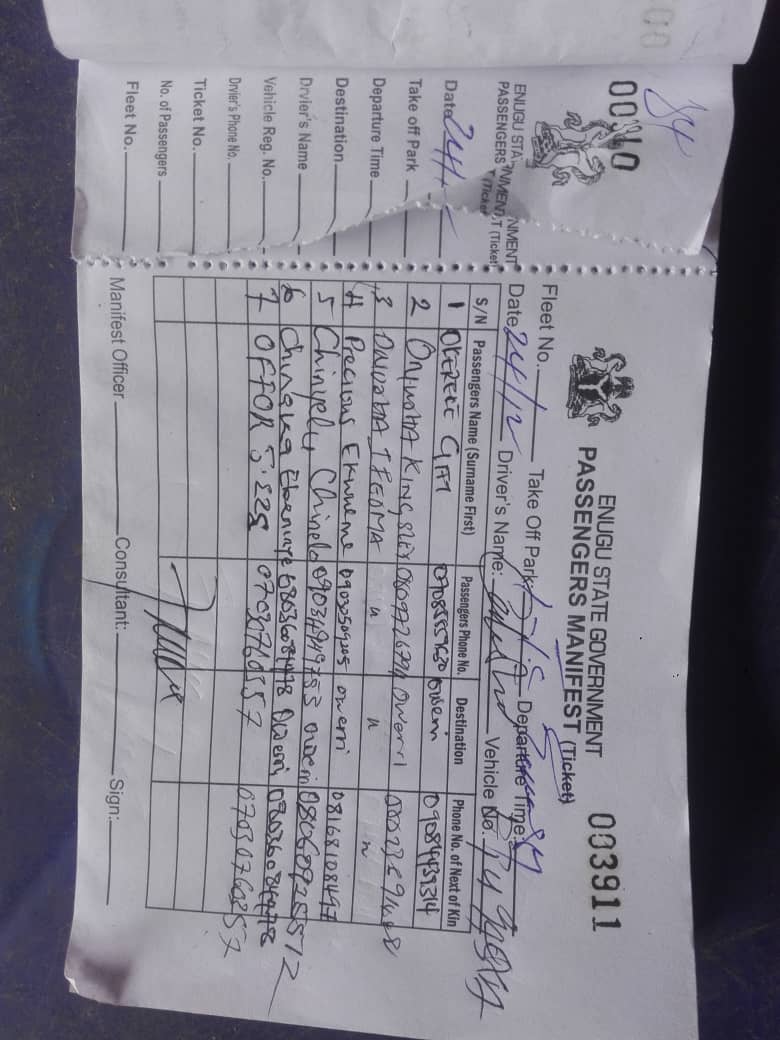 00
84
00 10
ENUGU STA NMENT
PASSENGERS (Ticket
NMENT
T (Ticket
Date 24/
Take off Park
Departure Time
Destination
Drvier's Name
Vehicle Reg. No.
Drvier's Phone No.
Ticket No.
No. of Passengers
Fleet No.
ENUGU STATE GOVERNMENT
PASSENGERS MANIFEST (Ticket)
003911
Fleet No. Take Off Park: Departure Time:
Date 24/12 Driver's Name: Vehicle No.
S/N Passengers Name (Surname First) Passengers Phone No. Destination Phone No. of Next of Kin
1 OKEREKE GIFT Owerri 09084431314
2 Onwuha KINGSLEY Owerri
3 Onwuha IFEOMA " " "
4 Precious Ekwueme 09032509205 owerri 08168108497
5 Chinyelu Chinelo 09034949753 owerri 08060925512
6 Chinaka Ebenizre 08036084978 Owerri 08036084978
7 OFFOR 07030760357 07030760357
Manifest Officer Consultant: Sign: